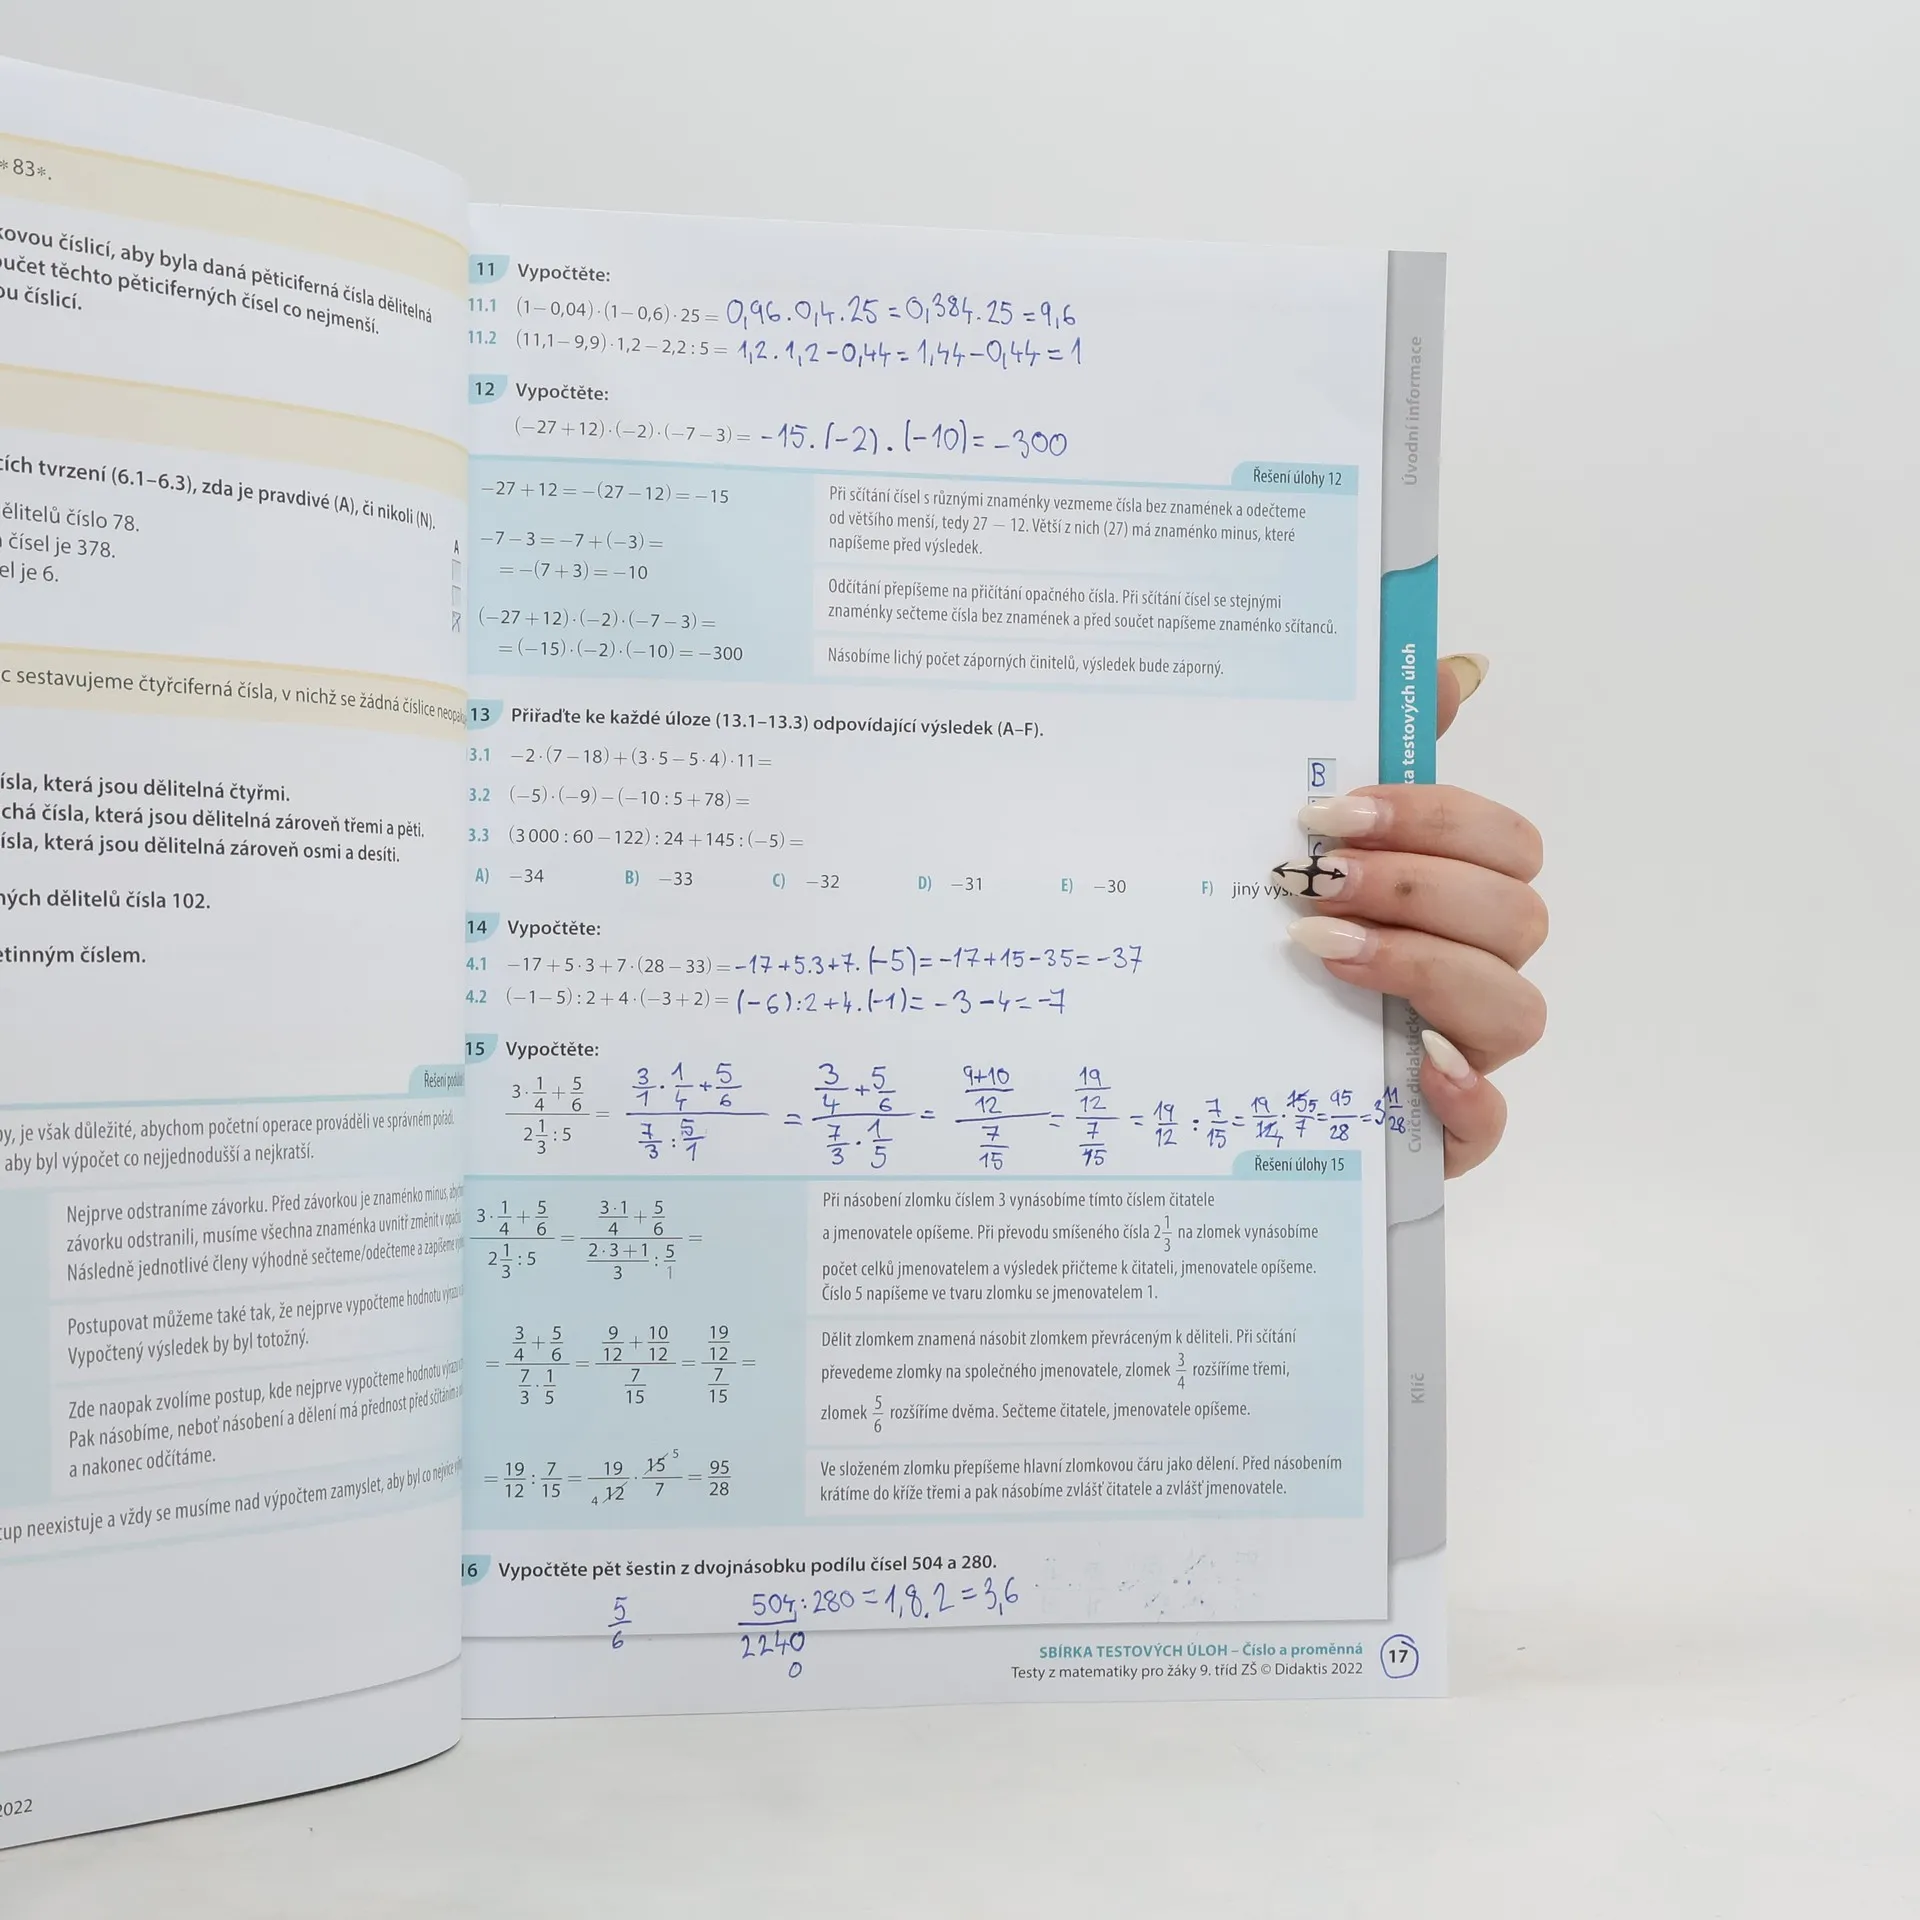 * 83*.
kovou číslicí, aby byla daná pěticiferná čísla dělitelná
oučet těchto pěticiferných čísel co nejmenší.
ou číslicí.
cích tvrzení (6.1–6.3), zda je pravdivé (A), či nikoli (N).
ělitelů číslo 78.
čísel je 378.
A
el je 6.
c sestavujeme čtyřciferná čísla, v nichž se žádná číslice
ísla, která jsou dělitelná čtyřmi.
chá čísla, která jsou dělitelná zároveň třemi a pěti.
ísla, která jsou dělitelná zároveň osmi a desíti.
ných dělitelů čísla 102.
etinným číslem.
Řešení
by, je však důležité, abychom početní operace prováděli ve správném pořadí,
aby byl výpočet co nejjednodušší a nejkratší.
Nejprve odstraníme závorku. Před závorkou je znaménko minus,
závorku odstranili, musíme všechna znaménka uvnitř změnit v
Následně jednotlivé členy výhodně sečteme/odečteme a zapíšeme
Postupovat můžeme také tak, že nejprve vypočteme hodnotu
Vypočtený výsledek by byl totožný.
Zde naopak zvolíme postup, kde nejprve vypočteme hodnotu
Pak násobíme, neboť násobení a dělení má přednost před
a nakonec odčítáme.
tup neexistuje a vždy se musíme nad výpočtem zamyslet, aby byl co
2022
11 Vypočtěte:
11.1 (1−0,04)·(1−0,6)·25= 0,96.0,4.25=0,384.25=9,6
11.2 (11,1−9,9)·1,2−2,2:5= 1,2.1,2-0,44=1,44-0,44=1
12 Vypočtěte:
(−27+12)·(−2)·(−7−3)= -15.(-2).(-10)=-300
Řešení úlohy 12
−27+12=−(27−12)=−15
−7−3=−7+(−3)=
=−(7+3)=−10
(−27+12)·(−2)·(−7−3)=
=(−15)·(−2)·(−10)=−300
Při sčítání čísel s různými znaménky vezmeme čísla bez znamének a odečteme
od většího menší, tedy 27 − 12. Větší z nich (27) má znaménko minus, které
napíšeme před výsledek.
Odčítání přepíšeme na přičítání opačného čísla. Při sčítání čísel se stejnými
znaménky sečteme čísla bez znamének a před součet napíšeme znaménko sčítanců.
Násobíme lichý počet záporných činitelů, výsledek bude záporný.
13 Přiřaďte ke každé úloze (13.1–13.3) odpovídající výsledek (A–F).
3.1 −2·(7−18)+(3·5−5·4)·11= B
3.2 (−5)·(−9)−(−10:5+78)=
3.3 (3000:60−122):24+145:(−5)=
A) −34 B) −33 C) −32 D) −31 E) −30 F) jiný
14 Vypočtěte:
4.1 −17+5·3+7·(28−33)= -17+5.3+7.(-5)=-17+15-35=-37
4.2 (−1−5):2+4·(−3+2)= (-6):2+4.(-1)=-3-4=-7
15 Vypočtěte:
3·1/4+5/6 / 2 1/3:5 = 3/1.1/4+5/6 / 7/3:5/1 = 3/4+5/6 / 7/3.1/5 = 9+10/12 / 7/15 = 19/12 / 7/15 = 19/12 : 7/15 = 19/12 4 . 15 5/7 = 95/28 = 3 11/28
Řešení úlohy 15
3·1/4+5/6 / 2 1/3:5 = 3·1/4+5/6 / 2·3+1/3:5/1 =
= 3/4+5/6 / 7/3·1/5 = 9/12+10/12 / 7/15 = 19/12 / 7/15 =
= 19/12 : 7/15 = 19/4 12 · 15 5/7 = 95/28
Při násobení zlomku číslem 3 vynásobíme tímto číslem čitatele
a jmenovatele opíšeme. Při převodu smíšeného čísla 2 1/3 na zlomek vynásobíme
počet celků jmenovatelem a výsledek přičteme k čitateli, jmenovatele opíšeme.
Číslo 5 napíšeme ve tvaru zlomku se jmenovatelem 1.
Dělit zlomkem znamená násobit zlomkem převráceným k děliteli. Při sčítání
převedeme zlomky na společného jmenovatele, zlomek 3/4 rozšíříme třemi,
zlomek 5/6 rozšíříme dvěma. Sečteme čitatele, jmenovatele opíšeme.
Ve složeném zlomku přepíšeme hlavní zlomkovou čáru jako dělení. Před násobením
krátíme do kříže třemi a pak násobíme zvlášť čitatele a zvlášť jmenovatele.
16 Vypočtěte pět šestin z dvojnásobku podílu čísel 504 a 280.
5/6 504:280=1,8.2=3,6
2240
0
SBÍRKA TESTOVÝCH ÚLOH – Číslo a proměnná
Testy z matematiky pro žáky 9. tříd ZŠ © Didaktis 2022
17
Úvodní informace
ka testových úloh
Cvičné didaktické
Klíč